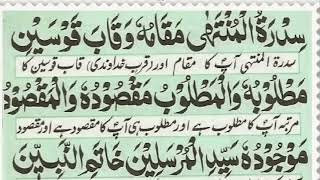 سِدْرَةُ الْمُنْتَهٰى مَقَامُهٗ وَقَابَ قَوْسَيْنِ
سدرۃ المنتہیٰ آپؐ کا مقام اور (قربِ خداوندی) قاب قوسین کا
مَطْلُوْبُهٗ وَالْمَطْلُوْبُ مَقْصُوْدُهٗ وَالْمَقْصُوْدُ
مرتبہ آپؐ کا مطلوب ہے اور مطلوب ہی آپؐ کا مقصود ہے اور مقصود
مَوْجُوْدُهٗ سَيِّدِ الْمُرْسَلِيْنَ خَاتَمِ النَّبِيّيْنَ